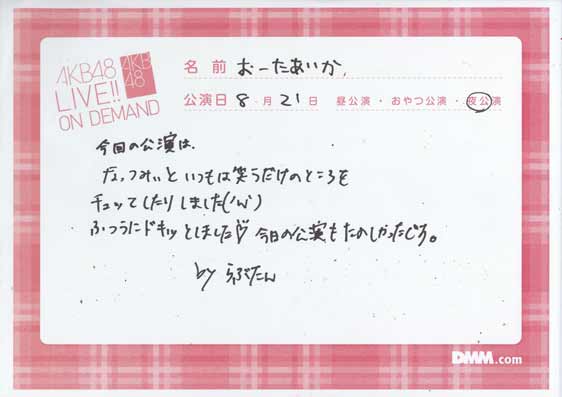 AKB48
LIVE!!
ON DEMAND
AKB
48
名前 おーたあいか、
公演日 8月21日 昼公演・おやつ公演・夜公演
今回の公演は、
なっつみぃと いつもは笑うだけのところを
チュッてしたりしました(^^)
ふつうにドキッとしました♡ 今日の公演もたのしかったです。
by らぶたん
DMM.com